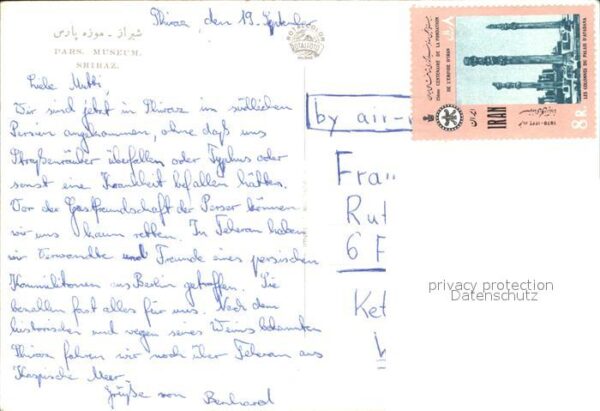 شیراز - موزه پارس
PARS. MUSEUM.
SHIRAZ.
Shiraz, den 19. September
Liebe Mutti,
Wir sind jetzt in Shiraz im südlichen
Persien angekommen, ohne daß uns
Straßenräuber überfallen oder Typhus oder
sonst eine Krankheit befallen hätten.
Vor der Gastfreundschaft der Perser können
wir uns kaum retten. In Teheran haben
wir Verwandte und Freunde eines persischen
Kommilitonen aus Berlin getroffen. Sie
bezahlen fast alles für uns. Nach dem
historischen und wegen seines Weins bekannten
Shiraz fahren wir noch über Teheran ans
Kaspische Meer.
Grüße von Bernhard
by air-
Frau
Rut
6 F
Ket
W
2500ème CENTENAIRE DE LA FONDATION
DE L'EMPIRE D'IRAN
LES COLONNES DU PALAIS D'APADANA
IRAN
ایران
1970-۱۳۴۹
8 R
۸
privacy protection
Datenschutz